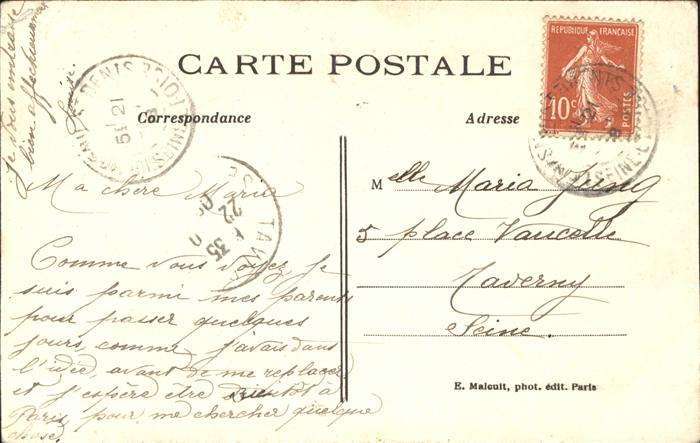 CARTE POSTALE
Correspondance
Adresse
REPUBLIQUE FRANÇAISE
10c
POSTES
Ma chère Maria
Comme vous voyez je
suis parmi mes parents
pour passer quelques
jours, comme j'avais dans
l'idée, avant de me replacer
et j'espère être bientôt à
Paris pour me chercher quelque
chose.
Je vous embrasse
bien affectueusement
Louise.
Melle Maria Jung
5 place Vaucelle
Taverny
Seine.
E. Malcuit, phot. édit. Paris